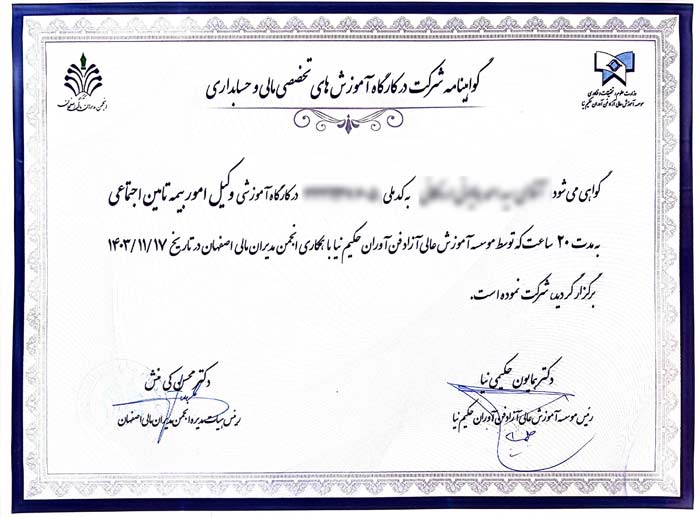 گواهینامه شرکت در کارگاه آموزش های تخصصی مالی و حسابداری
وزارت علوم، تحقیقات و فناوری
موسسه آموزش عالی آزاد فن آوران حکیم نیا
انجمن مدیران مالی اصفهان
گواهی می شود به کد ملی در کارگاه آموزشی وکیل امور بیمه تامین اجتماعی
به مدت ۲۰ ساعت که توسط موسسه آموزش عالی آزاد فن آوران حکیم نیا با همکاری انجمن مدیران مالی اصفهان در تاریخ ۱۴۰۳/۱۱/۱۷
برگزار گردید، شرکت نموده است.
دکتر همایون حکیمی نیا
رئیس موسسه آموزش عالی آزاد فن آوران حکیم نیا
دکتر محسن کی منش
رئیس هیات مدیره انجمن مدیران مالی اصفهان